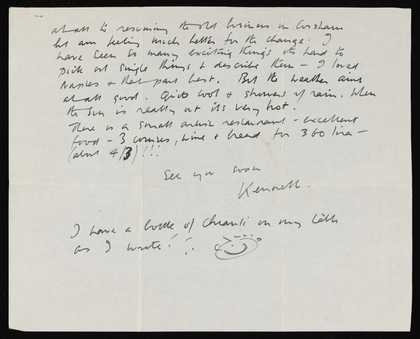 at all to resuming the old business in Corsham
but am feeling much better for the change. I
have seen so many exciting things its hard to
pick out single things & describe them – I loved
Naples & that part best. But the weather aint
at all good. Quite cool & showers of rain. When
the sun is really out its very hot.
There is a small artists restaurant – excellent
food – 3 courses, wine & bread for 360 lira –
(about 4/3) !!!
See you soon
Kenneth.
I have a bottle of Chianti on my table
as I write!